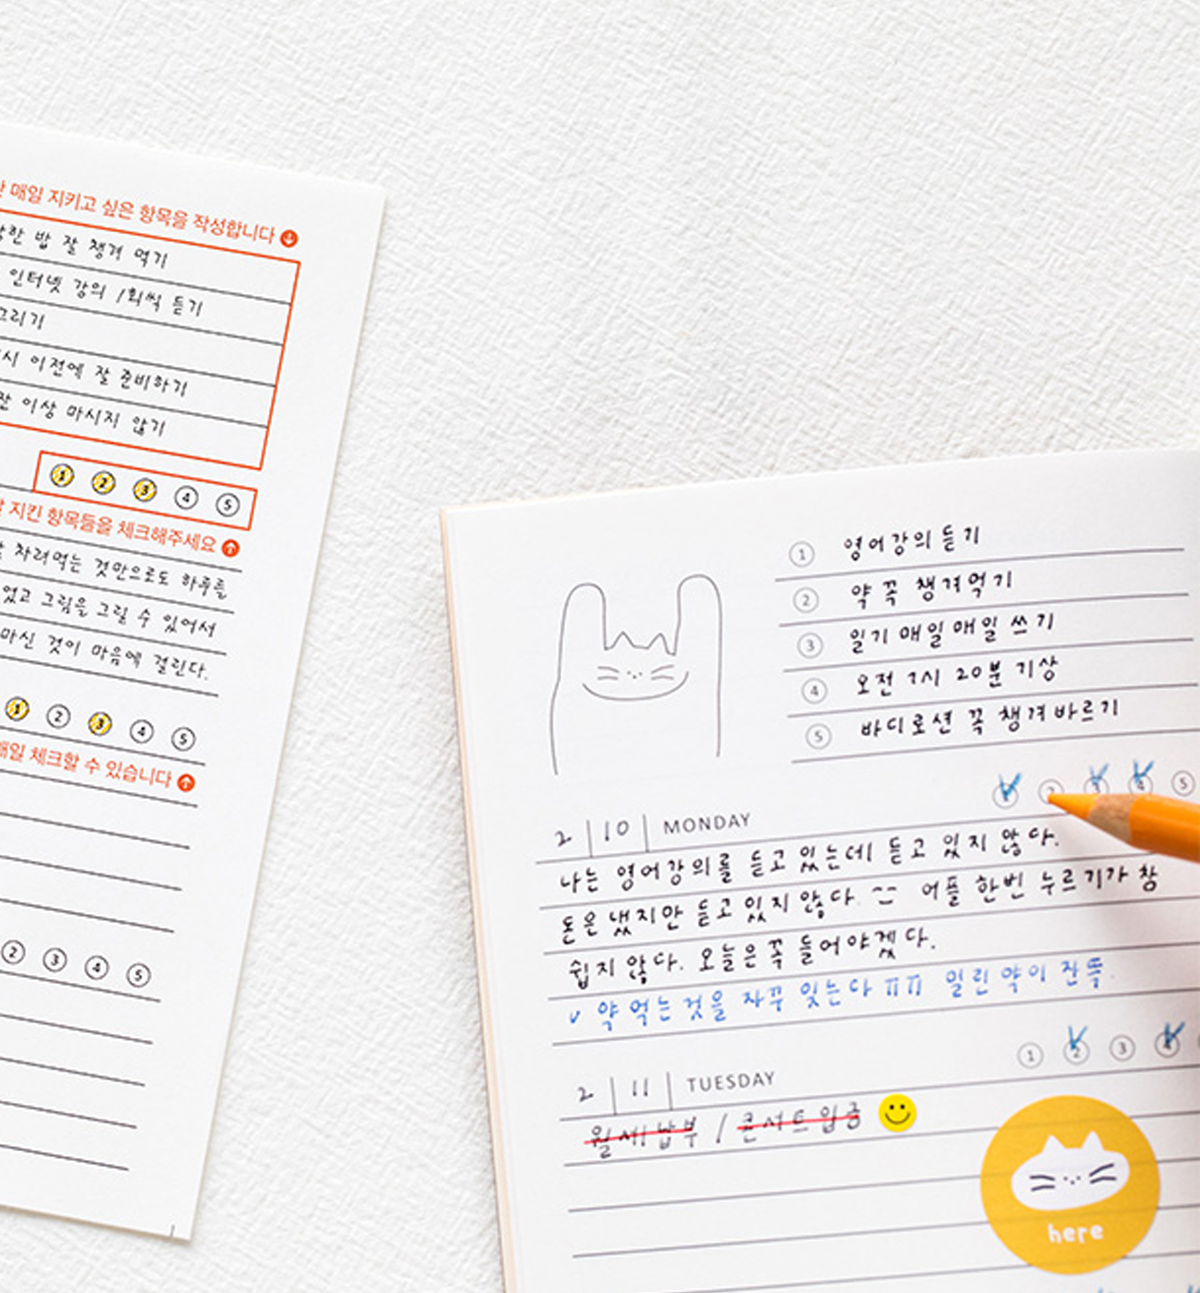 매일 지키고 싶은 항목을 작성합니다
밥 잘 챙겨 먹기
인터넷 강의 1회씩 듣기
그리기
시 이전에 잘 준비하기
잔 이상 마시지 않기
1 2 3 4 5
지킨 항목들을 체크해주세요
차려먹는 것만으로도 하루를
었고 그림을 그릴 수 있어서
마신 것이 마음에 걸린다.
1 2 3 4 5
매일 체크할 수 있습니다
2 3 4 5
1 영어강의 듣기
2 약 꼭 챙겨먹기
3 일기 매일매일 쓰기
4 오전 7시 20분 기상
5 바디로션 꼭 챙겨바르기
1 2 3 4 5
2 10 MONDAY
나는 영어강의를 듣고 있는데 듣고 있지 않다.
돈은 냈지만 듣고 있지 않다. 어플 한번 누르기가 참
쉽지 않다. 오늘은 꼭 들어야겠다.
v 약 먹는 것을 자꾸 잊는다 ㅠㅠ 밀린 약이 잔뜩.
1 2 3 4
2 11 TUESDAY
월세 납부 / 콘서트 입금
here